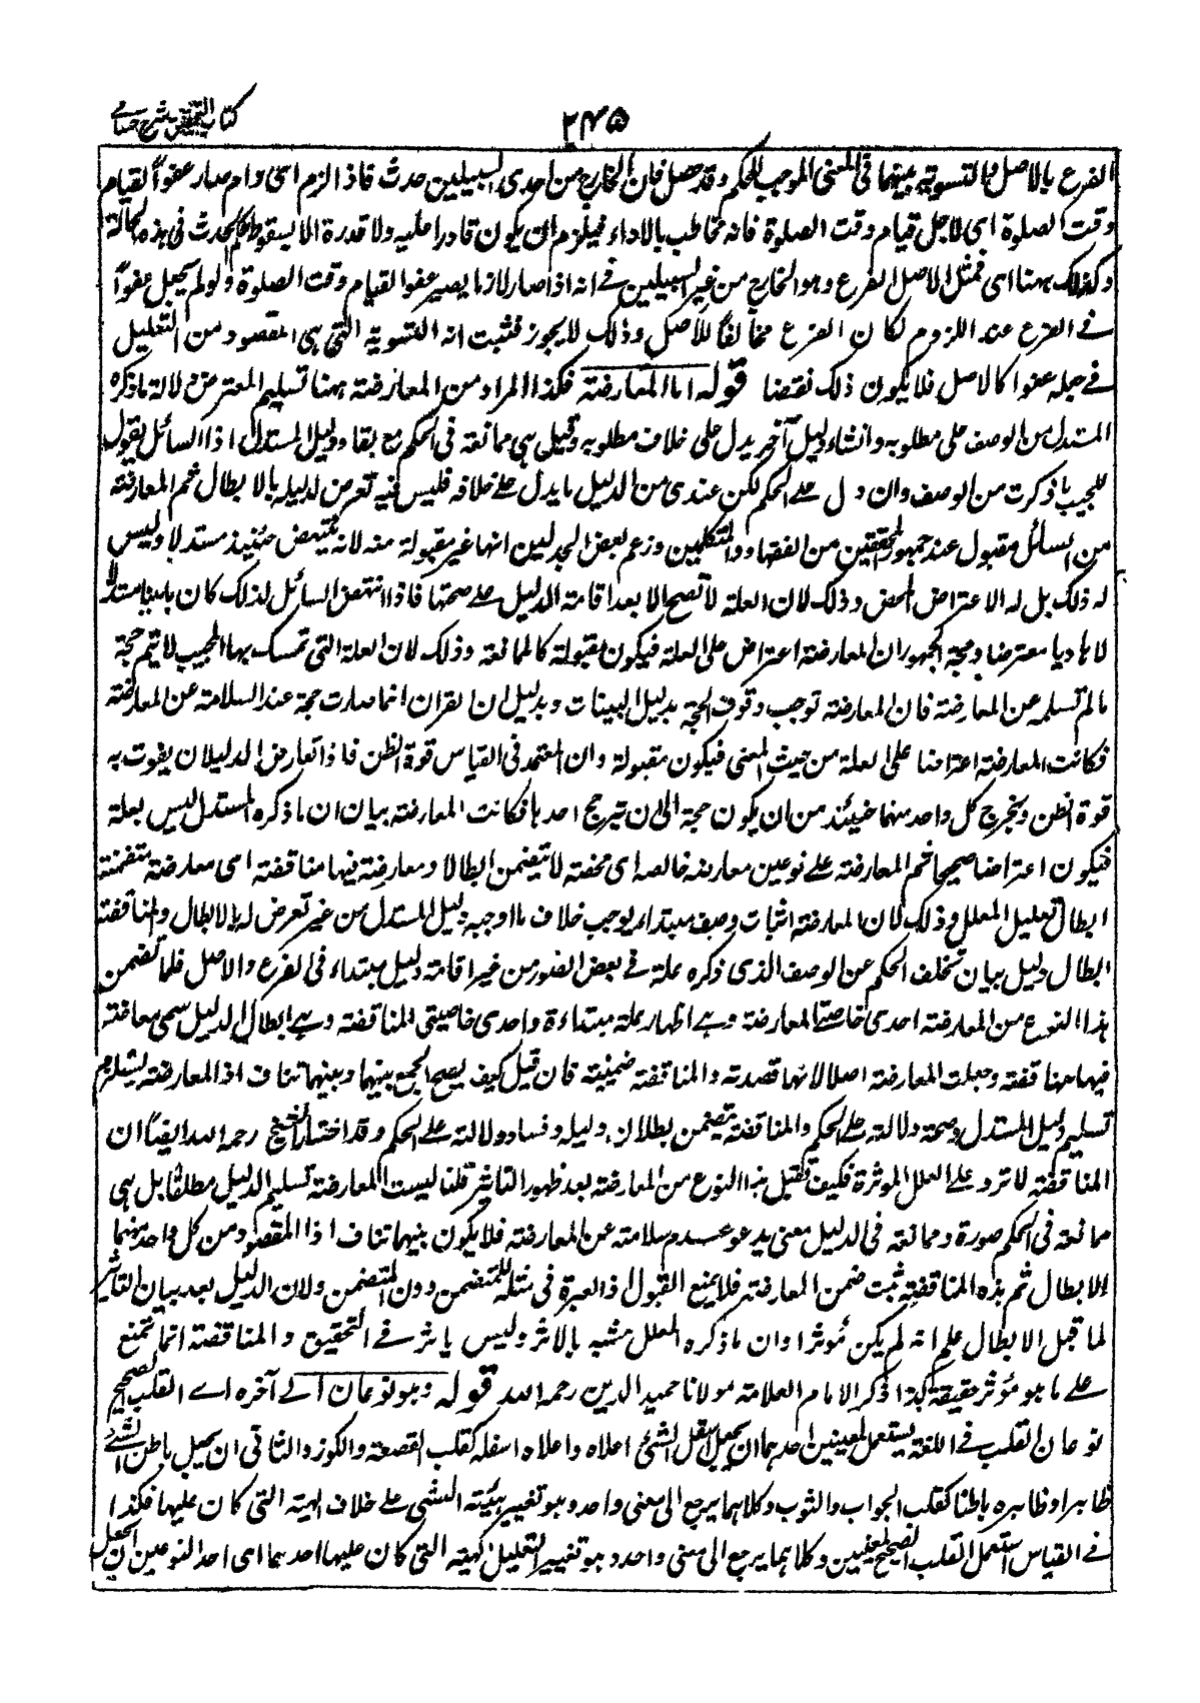 كتاب التحقيق شرح حسامي
٢٤٥
الفرع بالاصل فالتسوية بينهما فى المعنى الموجب للحكم وقد حصل فان الخارج من احدى السبيلين حدث فاذا لزم اى دام صار عفوا لقيام
وقت الصلوة اى لاجل قيام وقت الصلوة فانه مخاطب بالاداء فيلزم ان يكون قادرا عليه ولا قدرة الا بسقوط حكم الحدث فى هذه الحالة
وكذلك ههنا اى فمثل الاصل الفرع وهو الخارج من غير السبيلين فى انه اذا صار لازما يصير عفوا لقيام وقت الصلوة ولو لم يجعل عفوا
فى الفرع عند اللزوم لكان الفرع مخالفا للاصل وذلك لا يجوز فثبت انه التسوية التى هى المقصود من التعليل
فى جعله عفوا كالاصل فلا يكون ذلك نقضا قوله اما المعارضة فكذا المراد من المعارضة ههنا تسليم المعترض دلالة ما ذكره
المستدل من الوصف على مطلوبه وانشاء دليل آخر يدل على خلاف مطلوبه وقيل هى ممانعة فى الحكم مع بقاء دليل المستدل اذ السائل يقول
للمجيب ما ذكرت من الوصف وان دل على الحكم لكن عندى من الدليل ما يدل على خلافه فليس فيه تعرض لدليله بالابطال ثم المعارضة
من السائل مقبول عند جمهور المحققين من الفقهاء والمتكلمين وزعم بعض الجدليين انها غير مقبولة منه لانه ينتهض حينئذ مستدلا وليس
له ذلك بل له الاعتراض المحض وذلك لان العلة لا تصح الا بعد اقامة الدليل على صحتها فاذا انتهض السائل لذلك كان بانيا مستدلا
لا هاديا معترضا وحجة الجمهور ان المعارضة اعتراض على العلة فيكون مقبولة كالممانعة وذلك لان العلة التى تمسك بها المجيب لا يتم حجة
ما لم تسلم عن المعارضة فان المعارضة توجب وقوف الحجة بدليل البينات وبدليل ان القران انما صارت حجة عند السلامة عن المعارضة
فكانت المعارضة اعتراضا على العلة من حيث المعنى فيكون مقبولة وان المعتمد فى القياس قوة الظن فاذا تعارض الدليلان يفوت به
قوة الظن ويخرج كل واحد منهما حينئذ من ان يكون حجة الى ان يترجح احدها فكانت المعارضة بيان ان ما ذكره المستدل ليس بعلة
فيكون اعتراضا صحيحا ثم المعارضة على نوعين معارضة خالصة اى محضة لا تتضمن ابطالا ومعارضة فيها مناقضة اى معارضة متضمنة
ابطال تعليل المعلل وذلك لان المعارضة اثبات وصف مبتداء يوجب خلاف ما اوجبه دليل المستدل من غير تعرض له بالابطال والمناقضة
ابطال دليل ببيان تخلف الحكم عن الوصف الذى ذكره علة فى بعض الصور من غير اقامة دليل مبتداء فى الفرع والاصل فلما تضمن
هذا النوع من المعارضة احدى خاصتى المعارضة وهى اظهار علة مبتداءة واحدى خاصيتى المناقضة وهى ابطال الدليل سمى معارضة
فيها مناقضة وجعلت المعارضة اصلا لانها قصدية والمناقضة ضمنية فان قيل كيف يصح الجمع بينهما وبينهما تناف اذ المعارضة يستلزم
تسليم دليل المستدل وصحة دلالته على الحكم والمناقضة يتضمن بطلان دليله وفساد دلالته على الحكم وقد اختار الشيخ رحمه الله ايضا ان
المناقضة لا ترد على العلل الموثرة فكيف تقبل هذا النوع من المعارضة بعد ظهور التاثير قلنا ليست المعارضة تسليم الدليل مطلقا بل هى
ممانعة فى الحكم صورة وممانعة فى الدليل معنى يدعو عدم سلامته عن المعارضة فلا يكون بينهما تناف اذ المقصود من كل واحد منهما
الابطال ثم هذه المناقضة ثبت ضمن المعارضة فلا يمنع القبول اذ العبرة فى مثله للمتضمن دون المتضمن ولان الدليل بعد بيان التاثير
لما قبل الابطال علم انه لم يكن موثرا وان ما ذكره المعلل مشبه بالاثر وليس باثر فى التحقيق والمناقضة انما تمتنع
على ما هو موثر حقيقة كذا ذكر الامام العلامة مولانا حميد الدين رحمه الله قوله وهو نوعان الى آخره اى القلب الصحيح
نوعان القلب فى اللغة يستعمل لمعنيين احدهما ان يجعل اسفل الشئ اعلاه واعلاه اسفله كقلب القصعة والكوز والثانى ان يجعل باطن الشئ
ظاهرا وظاهره باطنا كقلب الجواب والثوب وكلاهما يرجع الى معنى واحد وهو تغيير هيئة الشئ على خلاف الهيئة التى كان عليها فكذا
فى القياس استعمل القلب الصحيح لمعنيين وكلاهما يرجع الى معنى واحد وهو تغيير التعليل الى هيئة التى كان عليها احدهما اى احد النوعين ان يجعل